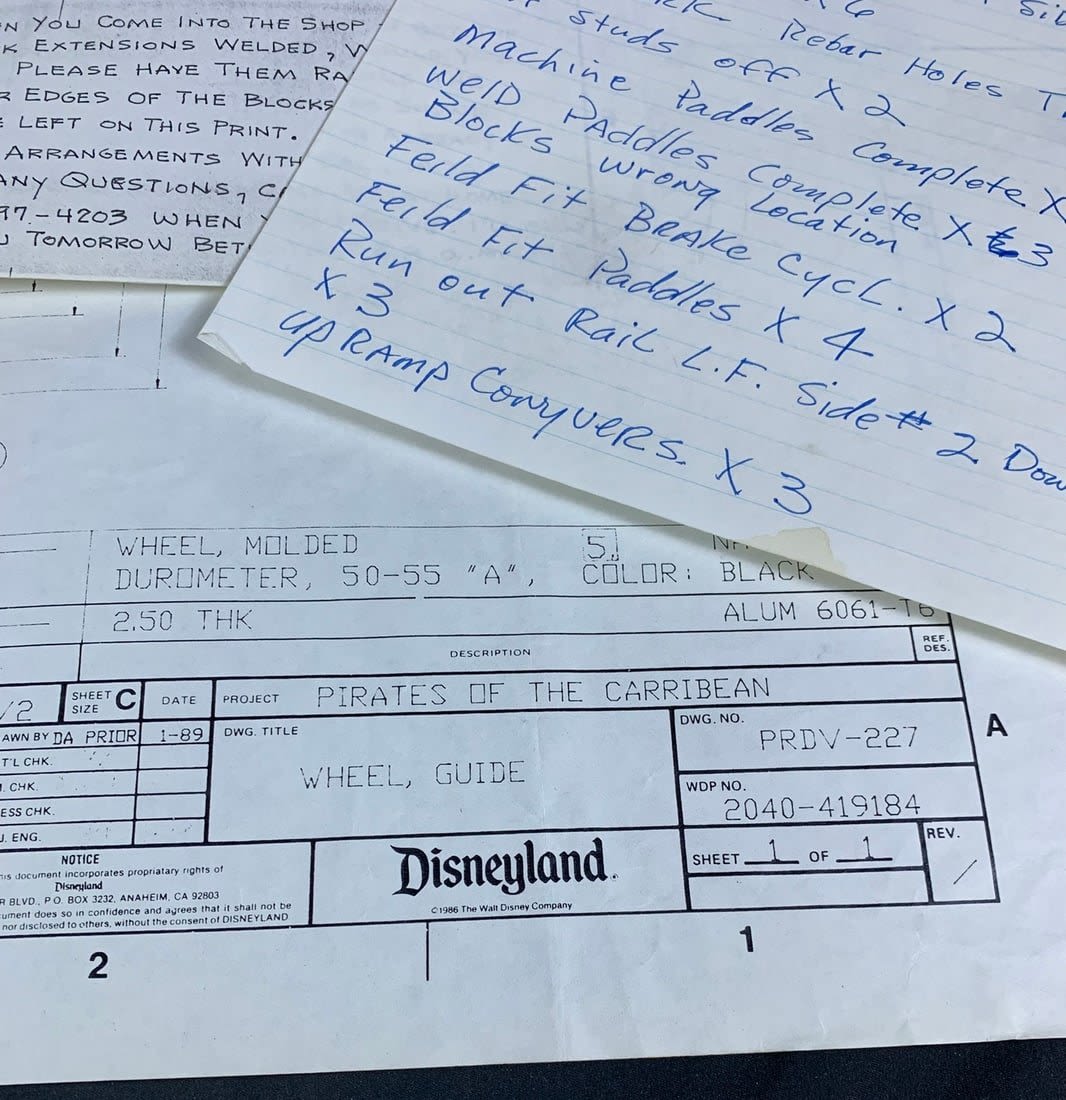 YOU COME INTO THE SHOP
EXTENSIONS WELDED,
PLEASE HAVE THEM
EDGES OF THE BLOCKS
LEFT ON THIS PRINT.
ARRANGEMENTS WITH
ANY QUESTIONS,
97-4203 WHEN
TOMORROW
Rebar Holes
Studs off X 2
Machine Paddles Complete X
Weld Paddles Complete X 3
Blocks wrong Location
Feild Fit Brake Cycl. X 2
Feild Fit Paddles X 4
Run out Rail L.F. Side # 2 Dow
X 3
up Ramp Conyvers. X 3
WHEEL, MOLDED
5.
DUROMETER, 50-55 "A", COLOR: BLACK
2.50 THK
ALUM 6061-T6
DESCRIPTION
REF.
DES.
/2
SHEET
SIZE C
DATE
PROJECT PIRATES OF THE CARRIBEAN
AWN BY DA PRIOR 1-89
DWG. TITLE
WHEEL, GUIDE
DWG. NO.
PRDV-227
A
T'L CHK.
. CHK.
ESS CHK.
. ENG.
WDP NO.
2040-419184
NOTICE
his document incorporates propriatary rights of
Disneyland
R BLVD., P.O. BOX 3232, ANAHEIM, CA 92803
ument does so in confidence and agrees that it shall not be
nor disclosed to others, without the consent of DISNEYLAND
Disneyland.
©1986 The Walt Disney Company
SHEET 1 OF 1
REV.
/
2
1